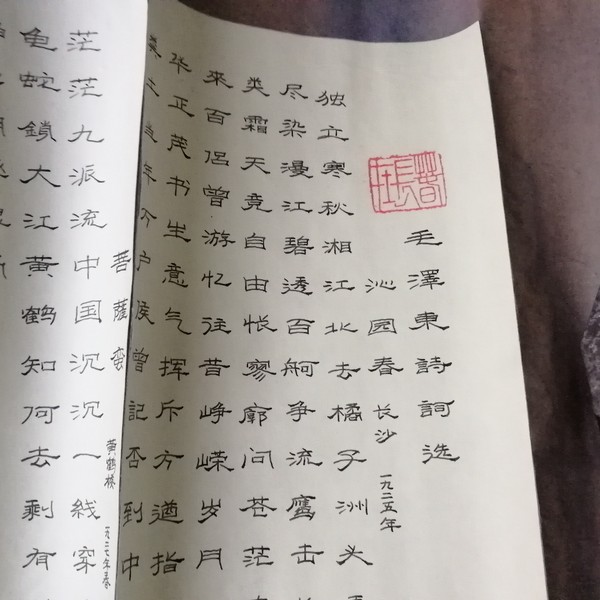 毛澤東詩詞选
沁园春 长沙 一九二五年
独立寒秋湘江北去橘子洲头
尽染漫江碧透百舸争流鹰击
类霜天竞自由怅寥廓问苍茫
來百侣曾游忆往昔峥嵘岁月
华正茂书生意气挥斥方遒指
粪土当年万户侯曾記否到中
菩薩蛮 黄鹤楼 一九二七年春
茫茫九派流中国沉沉一线穿
龟蛇鎖大江黄鹤知何去剩有